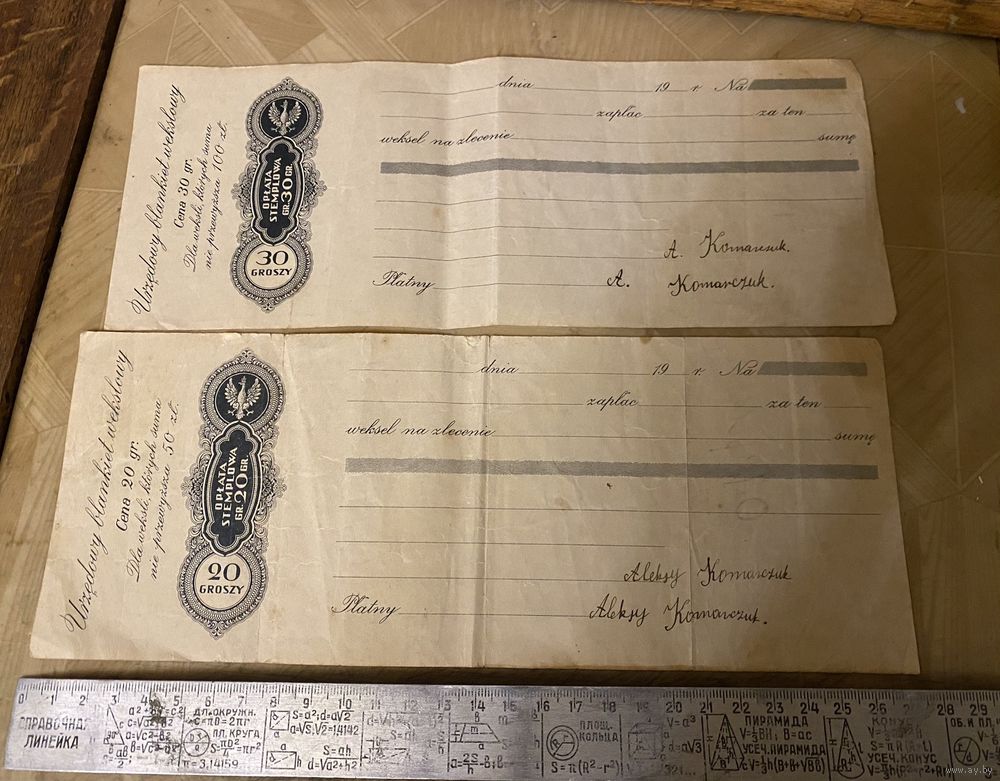 Urzędowy blankiet wekslowy
Cena 30 gr.
Dla weksli, których suma
nie przewyższa 100 zł.
OPŁATA
STEMPLOWA
GR. 30 GR.
30
GROSZY
dnia 19 r Na
zapłac za ten
weksel na zlecenie sumę
A. Komarczuk.
Płatny A. Komarczuk.
Urzędowy blankiet wekslowy
Cena 20 gr.
Dla weksli, których suma
nie przewyższa 50 zł.
OPŁATA
STEMPLOWA
GR. 20 GR.
20
GROSZY
dnia 19 r Na
zapłac za ten
weksel na zlecenie sumę
Aleksy Komarczuk
Płatny Aleksy Komarczuk.
0 1 2 3 4 5 6 7 8 9 10 11 12 13 14 15 16 17 18 19 20 21 22 23 24 25 26 27 28 29
СПРАВОЧНАЯ
ЛИНЕЙКА
a²+b²=c²
ДЛ. ОКРУЖН.
C=πD=2πr
ПЛ. КРУГА
π=3,14159
S=a²; d=a√2
S=ah
d=√a²+h²
ПЛОЩ.
КОЛЬЦА
S=π(R²-r²)
V=a³
d=a√3
ПИРАМИДА
V=⅓BH; B=ac
УСЕЧ. ПИРАМИДА
КОНУС
УСЕЧ. КОНУС
www.ay.by